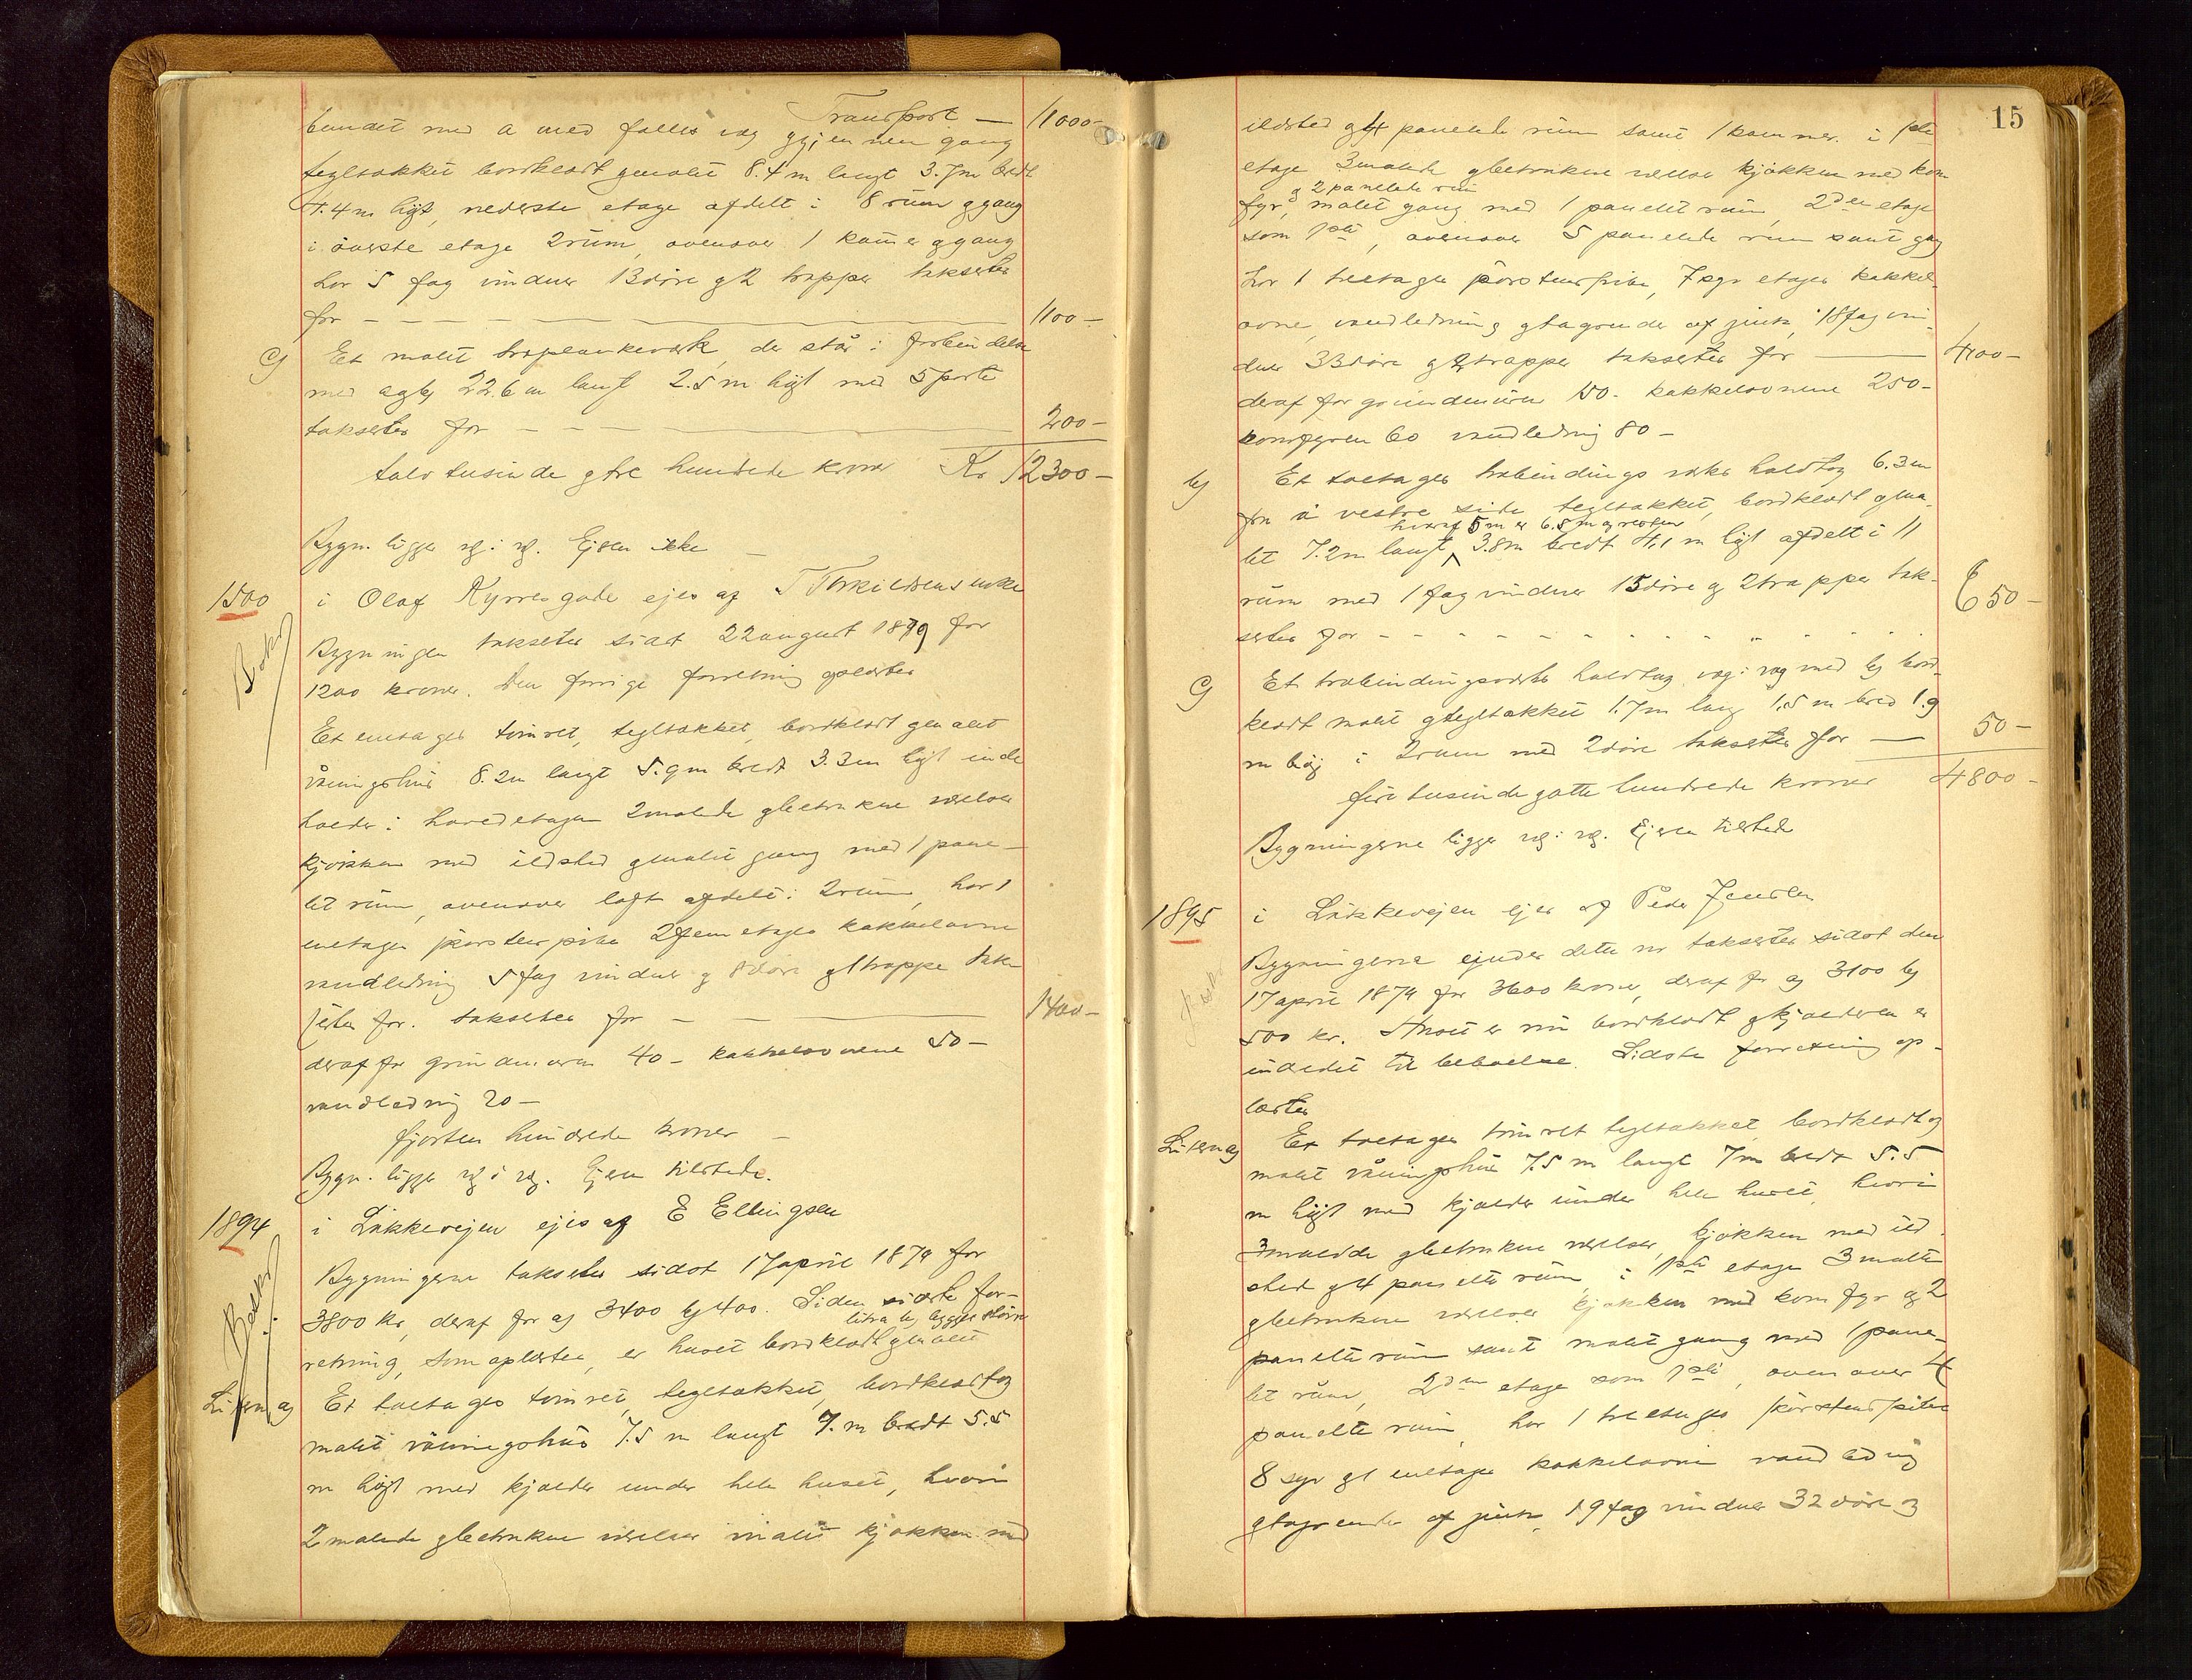 Transport — 11000-
bundet med a med fælles væg gjennem gang
tegltakket bordklædt g malet 8.4 m langt 3.7 m bredt
4.4 m høgt, nederste etage afdelt i 8 rum g gang
i øverste etage 2 rum, ovenover 1 kamer g gang
har 5 fag vinduer 13 døre g 2 trapper takseres
for — 1100-
c) Et malet træplankeværk der står i forbindelse
med a g b) 22.6 m langt 2.5 m høgt med 5 porte
takseres for — 200-
tolv tusinde g tre hundrede kroner Kr 12300-
Bygn. ligger vg. i vg. Ejeren ikke —
1500 i Olaf Kyrres gade ejes af T Torkildsens enke
Bygningen takseres sidst 22 august 1879 for
1200 kroner. Den forrige forretning oplæstes
Et enetages tømret, tegltakket, bordklædt g malet
våningshus 8.2 m langt 5.9 m bredt 3.3 m høgt inde
holder i hovedetagen 2 malede g betrukne værelser
kjøkken med ildsted g malet gang med 1 pane-
let rum, ovenover loft afdelt i 2 rum, har 1
enetages skorstenspibe 2 fem etages kakkelovne
vandledning 5 fag vinduer g 8 døre g 1 trappe tak-
seres for. takseres for — 1400-
deraf for grundmuren 40- kakkelovnene 50-
vandledning 20-
fjorten hundrede kroner —
Bygn. ligger vg i vg. Ejeren tilstede.
1894 i Løkkevejen ejes af E Ellingsen
Bygningerne takseres sidst 17 april 1874 for
3800 kr, deraf for a) 3400 b) 400. Siden sidste for-
litra b) bygget større
retning, som oplæstes, er huset bordklædt g malet
Litra a) Et toetages tømret, tegltakket, bordklædt og
malet våningshus 7.5 m langt 7. m bredt 5.5
m høgt med kjælder under hele huset, hvori
2 malede g betrukne værelser malet kjøkken med
15
ildsted g 4 panelede rum samt 1 kammer. i 1ste
etage 3 malede g betrukne værelser kjøkken med kom
g 2 panelede rum
fyr, malet gang med 1 panelet rum, 2den etage
som 1ste, ovenover 5 panelede rum samt gang
har 1 treetages skorstenspibe, 7 sgr etages kakkel-
ovne, vandledning g tagrender af zink, 18 fag vin-
duer 33 døre g 2 trapper takseres for — 4100-
deraf for grundmuren 150- kakkelovnene 250-
komfyren 60 vandledning 80-
b) Et toetages træbindingsværks halvtag 6.3 m
fra a vestre side tegltakket, bordklædt g ma-
hvoraf 5 m er 6.5 m g resten
let 7.2 m langt 3.8 m bredt 4.1 m høgt afdelt i 11
rum med 1 fag vinduer 15 døre g 2 trapper tak-
seres for - - - 650-
c) Et træbindingsværks halvtag væg i væg med b) bord-
klædt malet g tegltakket 1.7 m lang 1.5 m bred 1.9
m høj i 2 rum med 2 døre takseres for — 50-
fire tusinde g otte hundrede kroner 4800-
Bygningerne ligger vg. i vg. Ejeren tilstede
1895 i Løkkevejen ejes af Peder Jensen
Bygningerne under dette nr takseres sidst den
17 april 1874 for 3600 kroner, deraf for a) 3100 b)
500 kr. Huset er nu bordklædt g kjælderen er
indredet til beboelse. Sidste forretning op-
læstes
Litra a) Et toetages tømret tegltakket, bordklædt og
malet våningshus 7.5 m langt 7 m bredt 5.5
m høgt med kjælder under hele huset, hvori
3 malede g betrukne værelser, kjøkken med ild-
sted g 4 panelte rum, i 1ste etage 3 malte
g betrukne værelser kjøkken med komfyr og 2
panelte rum samt malet gang med 1 pane-
let rum, 2den etage som 1ste, ovenover 4
panelte rum, har 1 treetages skorstenspibe
8 sgr g 1 enetages kakkelovne vandledning
g tagrender af zink, 19 fag vinduer 32 døre og